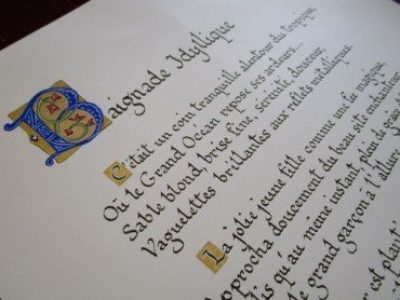 Baignade Idyllique
C'était un coin tranquille alentour du tropique,
Où le Grand Océan repose ses ardeurs...
Sable blond, brise fine, sérénité, douceur,
Vaguelettes brillantes aux reflets métalliques.
La jolie jeune fille comme une fée magique,
approcha doucement du beau site enchanteur
dis qu'au même instant, plein de
le grand garçon à l'allure
est plant